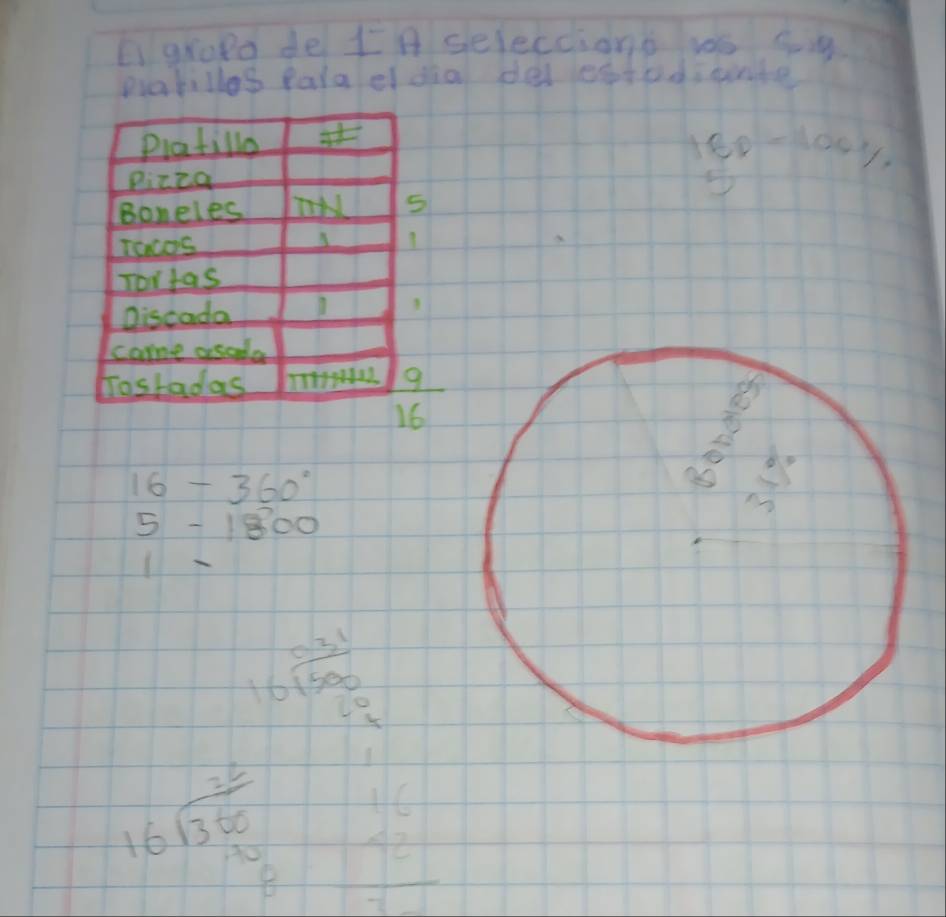 El grupo de 1° A selecciono los sig.
platillos para el dia del estudiante
Platillo #
Pizza
Boneles 5
Tacos 1 1
Tortas
Discada 1 1
carne asada
Tostadas 9
16
180 - 100%
5
Boneles
31%
16 - 360°
5 - 1800
1 -
031
16 500
20
4
1
16 360
40
8
16